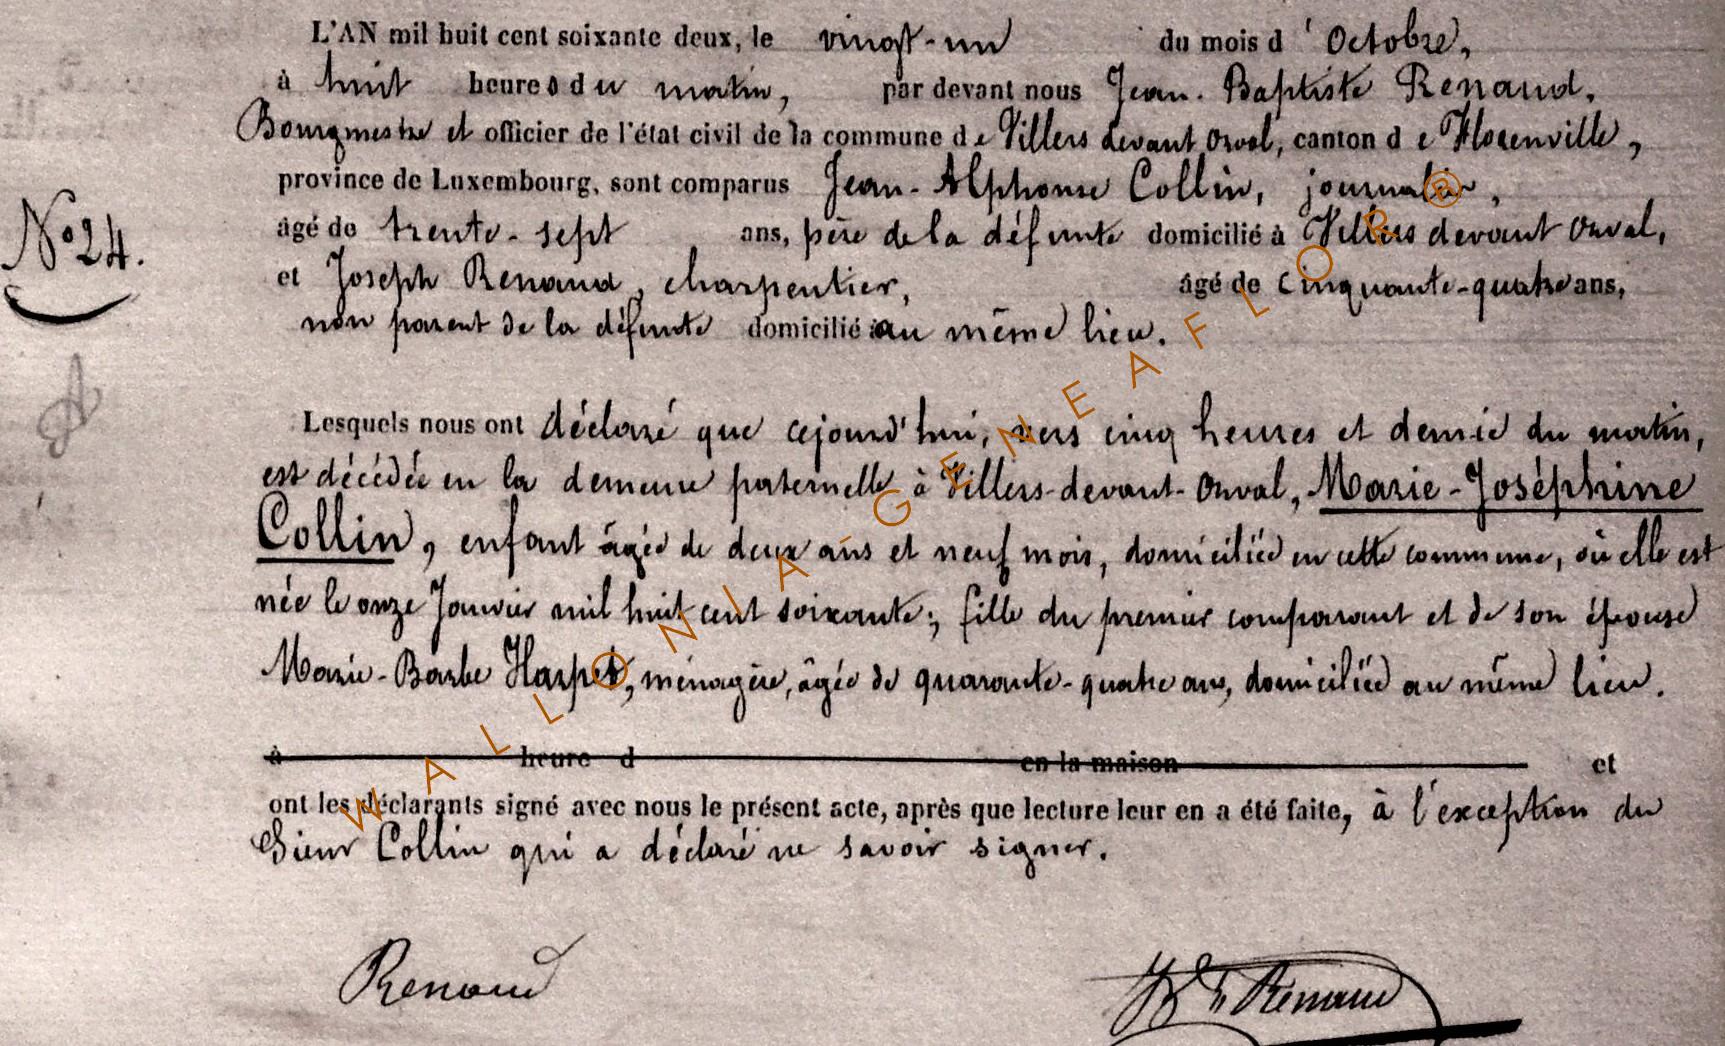 L'AN mil huit cent soixante deux, le vingt-un du mois d'Octobre,
à huit heures du matin, par devant nous Jean-Baptiste Renaud,
Bourgmestre et officier de l'état civil de la commune de Villers devant Orval, canton de Florenville,
province de Luxembourg, sont comparus Jean-Alphonse Collin, journalier,
N° 24.
âgé de trente-sept ans, père de la défunte domicilié à Villers devant Orval,
et Joseph Renaud, charpentier, âgé de Cinquante-quatre ans,
non parent de la défunte domicilié au même lieu.
Lesquels nous ont déclaré que cejourd'hui, vers cinq heures et demie du matin,
est décédée en la demeure paternelle à Villers-devant-Orval, Marie-Joséphine
Collin, enfant âgée de deux ans et neuf mois, domiciliée en cette commune, où elle est
née le onze Janvier mil huit cent soixante; fille du premier comparant et de son épouse
Marie-Barbe Harpet, ménagère, âgée de quarante-quatre ans, domiciliée au même lieu.
à heure d en la maison et
ont les déclarants signé avec nous le présent acte, après que lecture leur en a été faite, à l'exception du
Sieur Collin qui a déclaré ne savoir signer.
Renaud
JBte Renaud
WALLONIA GENEAFLOR®